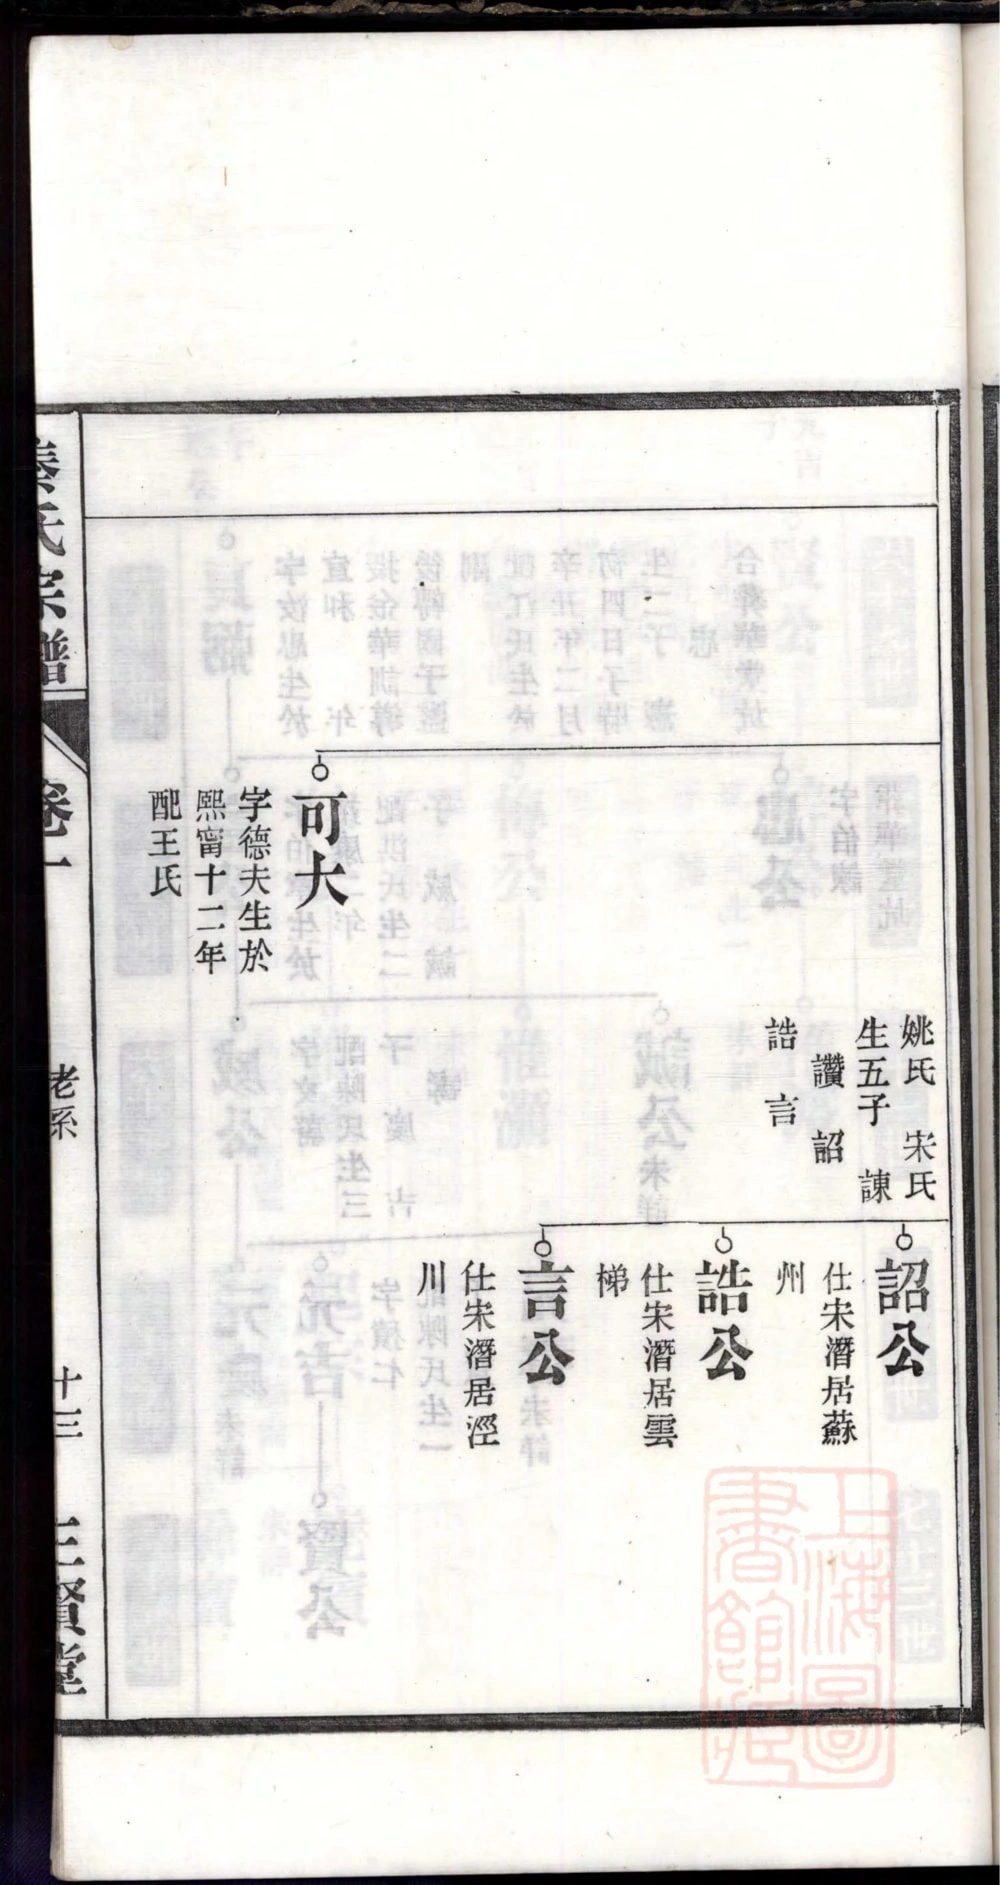 可大
字德夫生於
熙甯十二年
配王氏
姚氏　宋氏
生五子　諫
讚　詔
誥　言
詔公
仕宋潛居蘇
州
誥公
仕宋潛居雲
梯
言公
仕宋潛居涇
川
秦氏宗譜
卷一
老系
十三
三賢堂
上海圖
書館藏